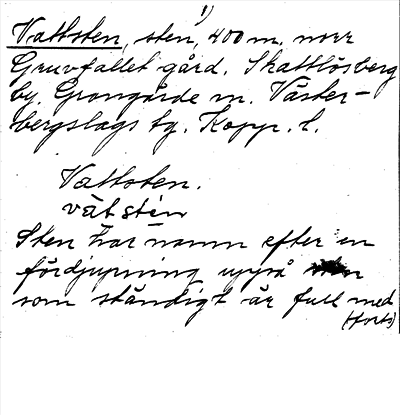 1)
Vattsten, sten, 400 m. norr
Gruvfallet gård. Skattlösberg
by. Grangärde m. Väster-
bergslags tg. Kopp. l.
Vattsten.
vàtstén
Sten har namn efter en
fördjupning uppå
som ständigt är full med
(forts)